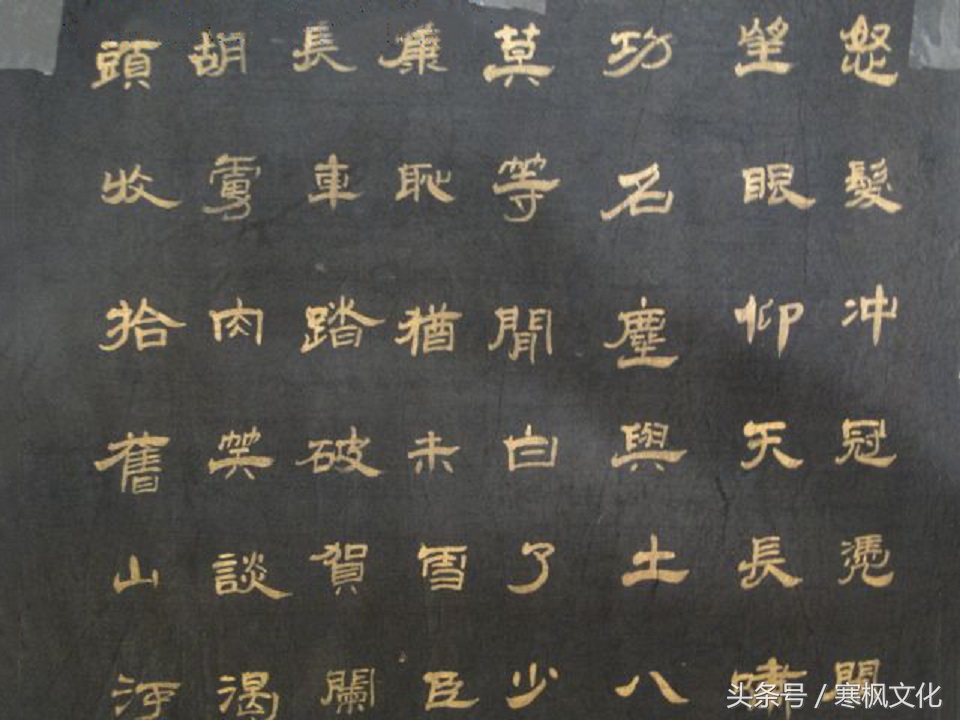 怒髮冲冠憑
望眼仰天長嘯
功名塵與土八
莫等閒白了少
康恥猶未雪臣
長車踏破賀闌
胡虜肉笑談渴
頭收拾舊山河
头条号 / 寒枫文化